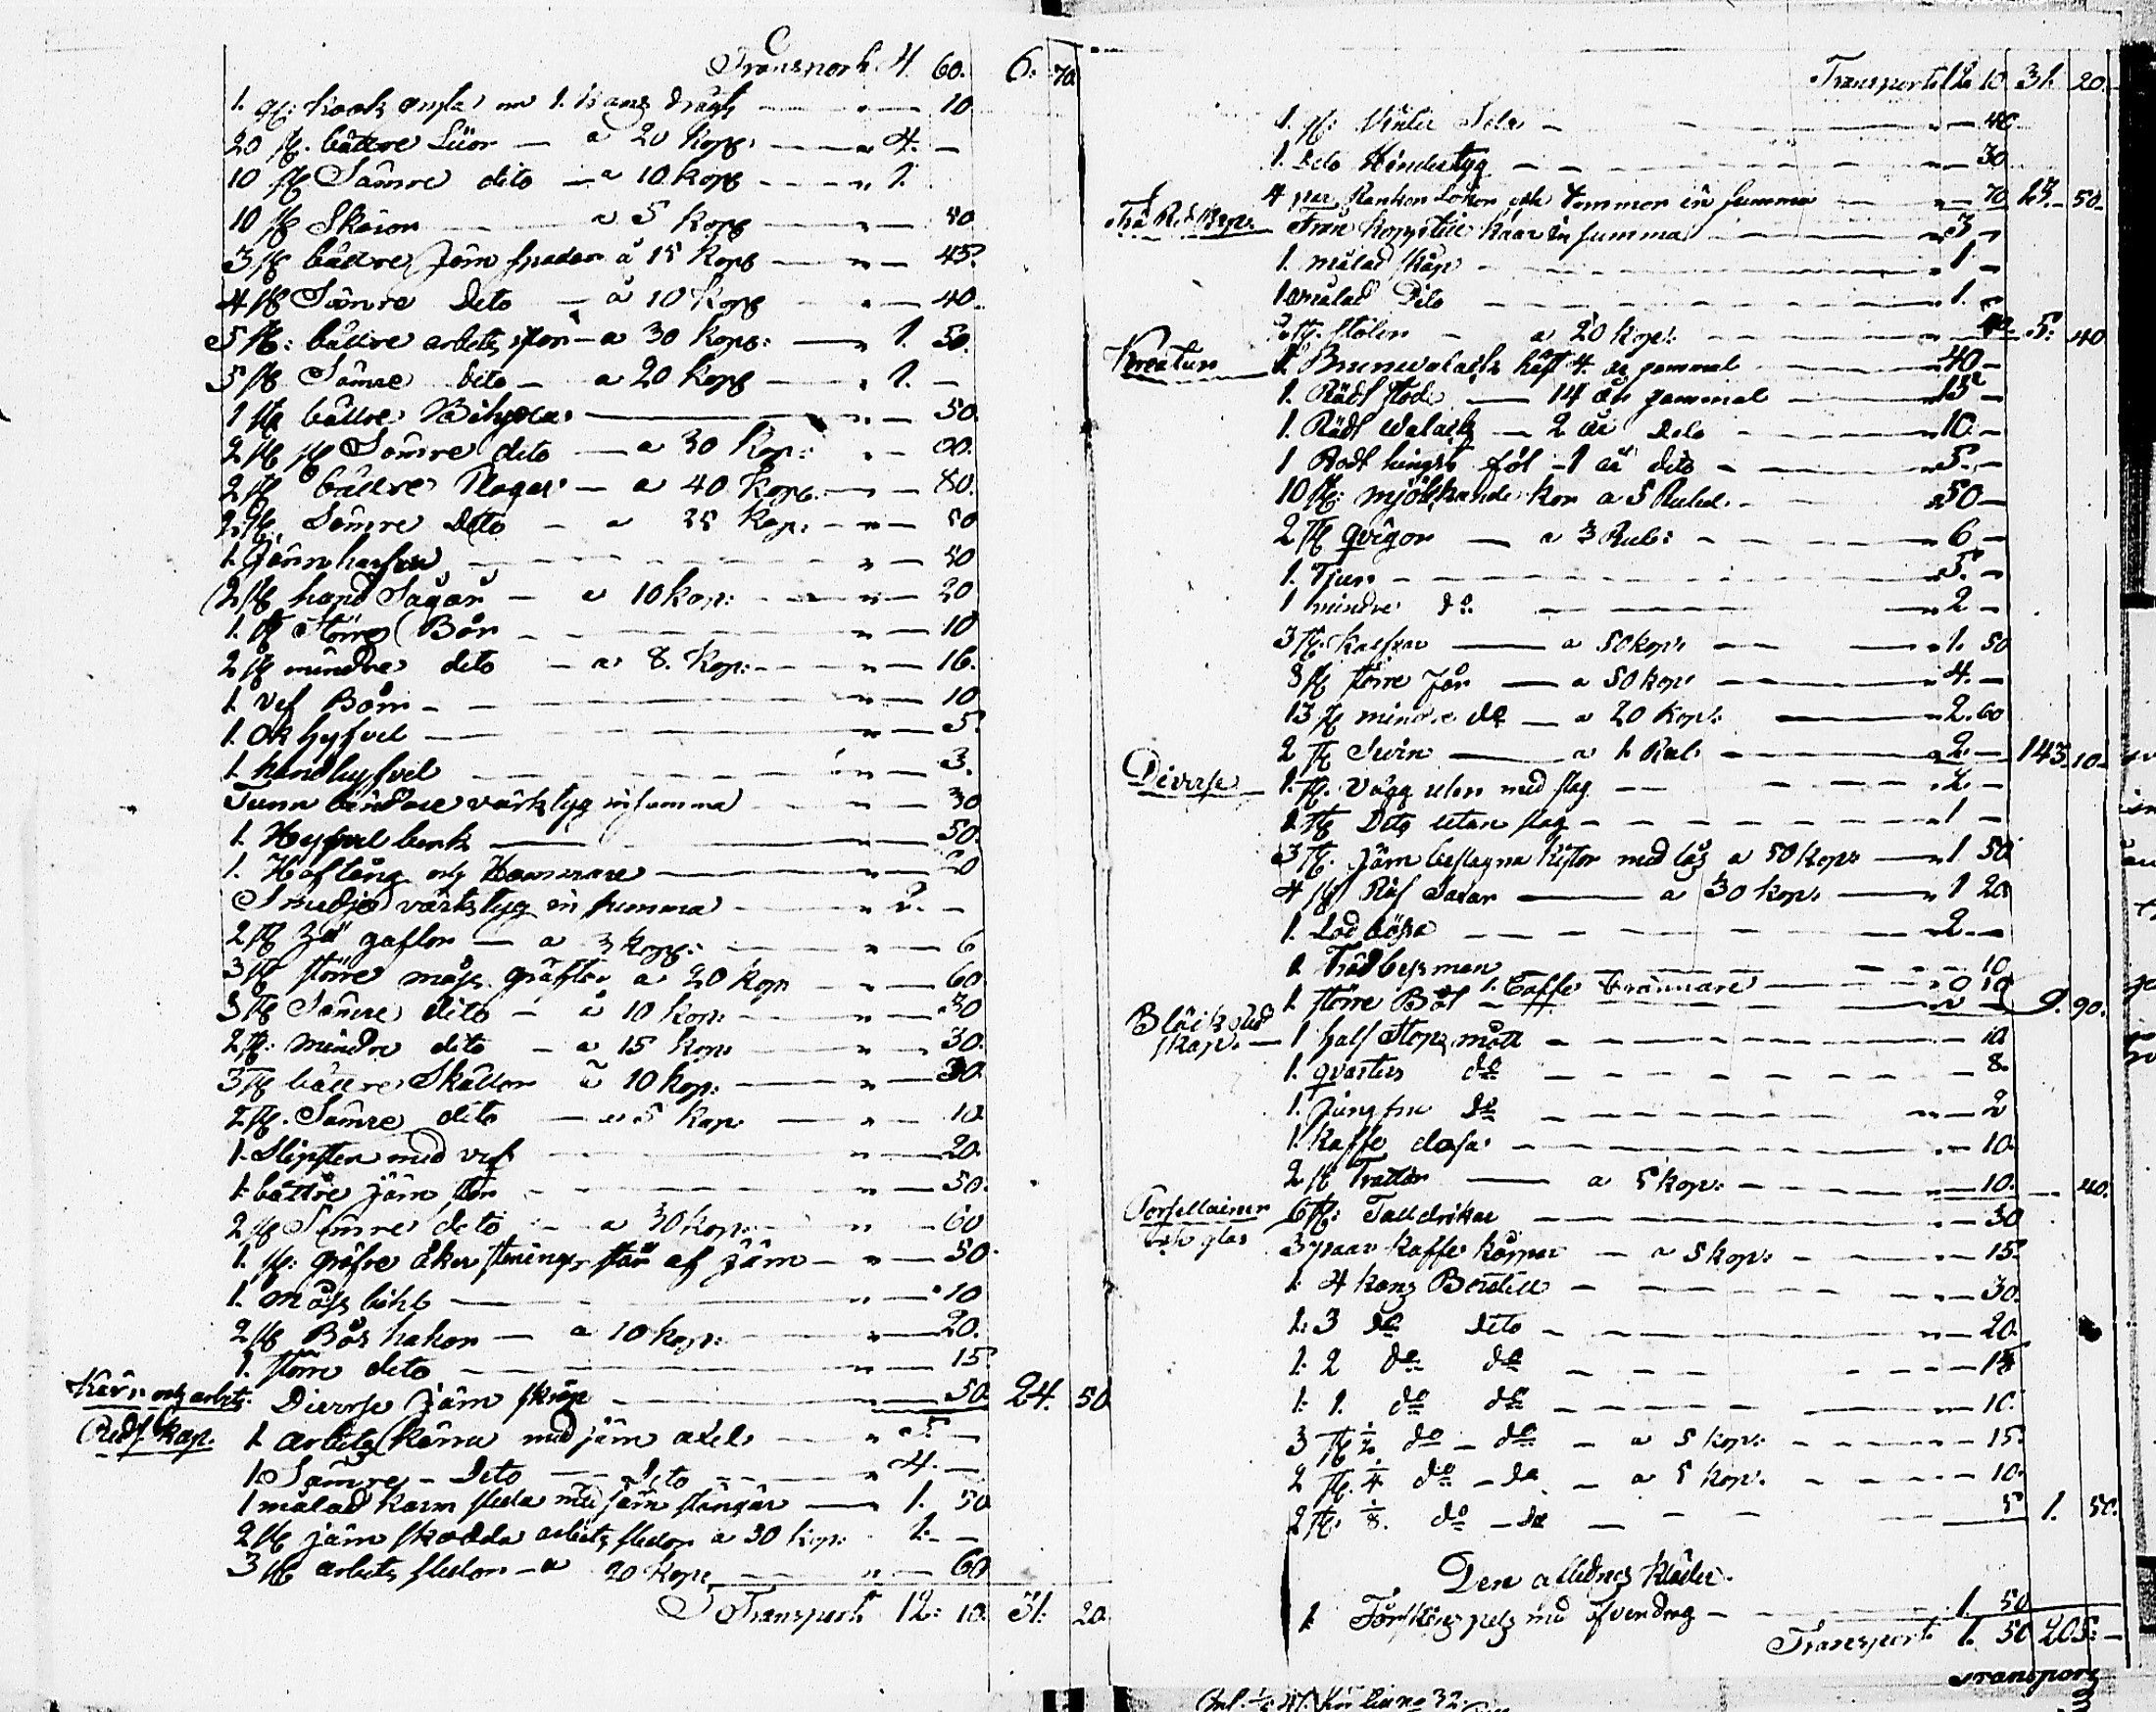 Transport 4. 60. 6. 70.
1. st: kook angla om 1. kanz drägt — " — 10
20 st. bättre Liior — a 20 Kop: — " 4. —
10 st Sämre dito — a 10 kop — " 1.
10 st Skäror a 5 kop — " — 50
3 st bättre Järn spader á 15 kop — " — 45.
4 st Sämre Dito — á 10 kop " — 40.
5 st: bättre arbetz yxor — a 30 kop: — " 1. 50.
5 st Sämre dito — a 20 kop — " 1. —
1 st bättre Bihyxa — " — 50.
2 st Sämre dito — a 30 Kop: " — 60.
2 st bättre Plogar — a 40 kop. — " — 80.
2 st. Sämre Dito — a 25 kop. — " — 50
1. Järn harfva — " — 50
2 st hand Sågar — a 10 kop: — " — 20
1. st Större Bår — " — 10
2 st mindre dito — a 8. kop: — " — 16.
1. Vef Bårr — " — 10
1. Ok hyfvel — " — 5.
1. handhyfvel — " — 3.
Tunn bindare värktyg in summa — " — 30
1. Heyfvel benk — " — 50.
1. Hoftång och Hammare — " — 20
Smedje värkstyg in summa — " 2. —
2 st Jä gaflor — a 3 kop: — " — 6
3 st större måss gräftor a 20 kop — " — 60
3 st Sämre dito — á 10 kop: — " — 30
2 st: mindre dito — a 15 kop — " — 30.
3 st bättre Skåttor á 10 kop: — " — 30.
2 st. Sämre dito — a 5 kop — " — 10
1. Slipsten med vef — " — 20.
1. bättre järn stör — " — 50.
2 st Sämre dito — a 30 kop: — " — 60
1. st: gröfre åker stenings stör af järn — " — 50.
1. måss bihl — " — 10
2 st Bås hakor — a 10 kop: — " — 20.
1. större dito — " — 15
Diverse järn skräp — 50. 24. 50
Kärr och arbetz.
Redskap.
1 arbetz kärra med järn axel — " 5 —
1. Sämre — Dito — Dito — " 4. —
1 målad karm sleda med järn stänger — 1. 50
2 st järn skodda arbetz sledor a 50 kop: 1. —
3 st arbetz sledor — a 20 kop. — " — 60
Transport 12: 10. 31. 20.
Transport 12 10 31. 20.
1. st: Vinter Sela — " — 40
1. Dito Hindertyg — " — 30
4 par Rankor Lokor och tömmor in summa — " — 70 17. 50.
Trä Redskap. Trän koppstill kaar in summa — " 3 —
1. målad skåp — " 1 —
1 omålad Dito — " 1. —
2 st. stolar — a 20 kop: — 40 5. 40
Kreatur 1. Brunvalack häst 4. år gammal — 40 —
1. Rödt stod — 14 år gammal — 15 —
1. Rödt walack — 2 år Dito — 10. —
1 Rodt hingst föl — 1 år dito — 5. —
10 st: mjölkande kor a 5 Rubel. — 50 —
2 st qvigor — a 3 Rub: — 6 —
1. Tjur — 5. —
1 mindre do — 2 —
3 st. kalfvar — a 50 kop: — 1. 50
8 st större Får — a 50 kop: — 4. —
13 st mindre do — a 20 kop: — 2. 60
2 st Svin — a 1 Rub: — 2. — 143. 10.
Diverse — 1. st. Vägg uhr med slag — 2. —
1 st Dito utan slag — 1
3 st. järn beslagna kistor med lås a 50 kop — 1 50
4 st Räf Saxar — a 30 kop: — 1 20
1. Lod bössa — 2. —
1 Träd besman — 10
1 större Båt — 1. Caffe brännare — 0 10 9. 90.
Bläck Red
skap. — 1 half Stops mått — 10
1. qvarters do — 8.
1. Jungfru do — 2
1. kaffe dosa — 10.
2 st Trattar — a 5 kop: — 10. — 40.
Porsellainer
och glas
6 st: Talldrikar — 30
3 paar kaffe koppar — a 5 kop: — 15.
1. 4 kanz Bouteill — 30.
1: 3 do Dito — 20.
1. 2 do do — 15
1: 1. do do — 10.
3 st ½ do — do — a 5 kop: — 15.
2 st. ¼ do — do — a 5 kop. — 10.
2 st. ⅛. do — do — 5 1. 50.
Den aflednes kläder.
1. Fårskins pels med öfverdrag — 1. 50
Transport 1. 50 205. —
Transport